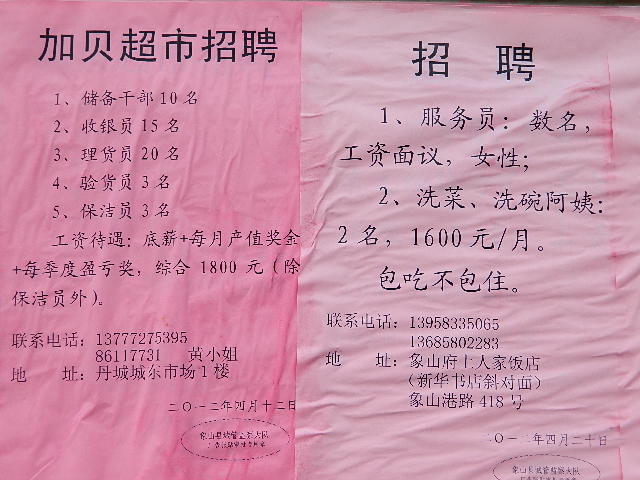 加贝超市招聘
1、储备干部10名
2、收银员15名
3、理货员20名
4、验货员3名
5、保洁员3名
工资待遇：底薪+每月产值奖金
+每季度盈亏奖，综合1800元（除
保洁员外）。
联系电话：13777275395
86117731 黄小姐
地 址：丹城城东市场1楼
二〇一二年四月十二日
象山县城管监察大队
招 聘
1、服务员：数名，
工资面议，女性；
2、洗菜、洗碗阿姨：
2名，1600元/月。
包吃不包住。
联系电话：13958335065
13685802283
地 址：象山府上人家饭店
（新华书店斜对面）
象山港路418号
二〇一二年四月二十日
象山县城管监察大队